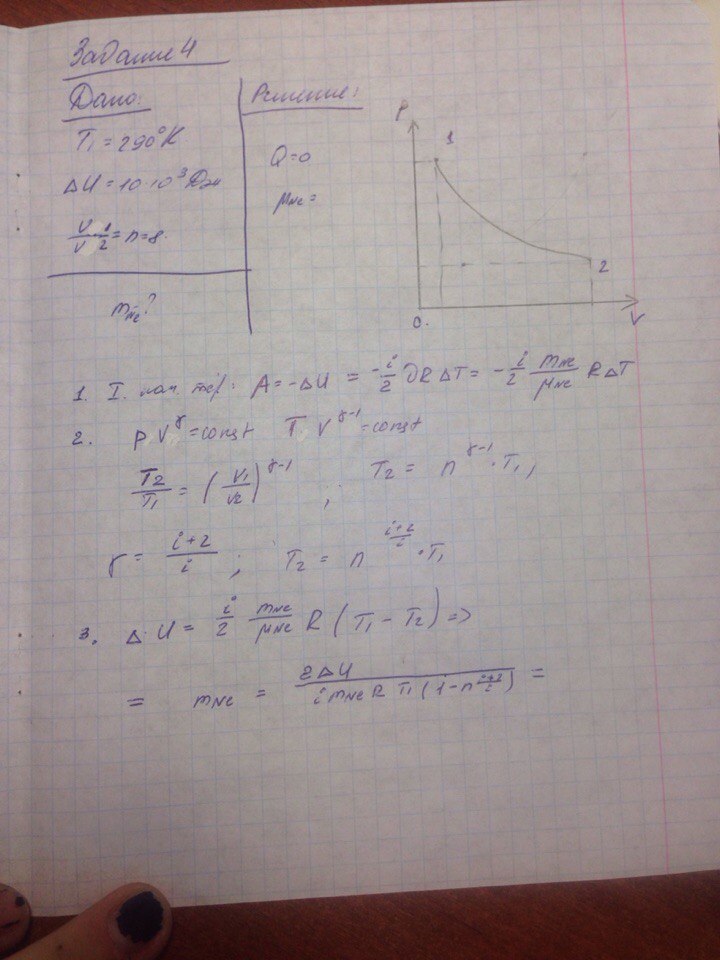 Задание 4
Дано:
Решение:
T₁ = 290°K
ΔU = 10·10³ Дж
V₁/V₂ = n = 8.
m_Ne?
Q = 0
μ_Ne =
P
1
2
0.
V
1. I. нач. тер: A = -ΔU = -i/2 νRΔT = -i/2 m_Ne/μ_Ne RΔT
2. P V^γ = const T V^(γ-1) = const
T₂/T₁ = (V₁/V₂)^(γ-1) ; T₂ = n^(γ-1) · T₁,
γ = (i+2)/i ; T₂ = n^((i+2)/i) · T₁
3. ΔU = i/2 m_Ne/μ_Ne R (T₁ - T₂) =>
= m_Ne = 2ΔU/(i m_Ne R T₁ (1 - n^((i+2)/i))) =